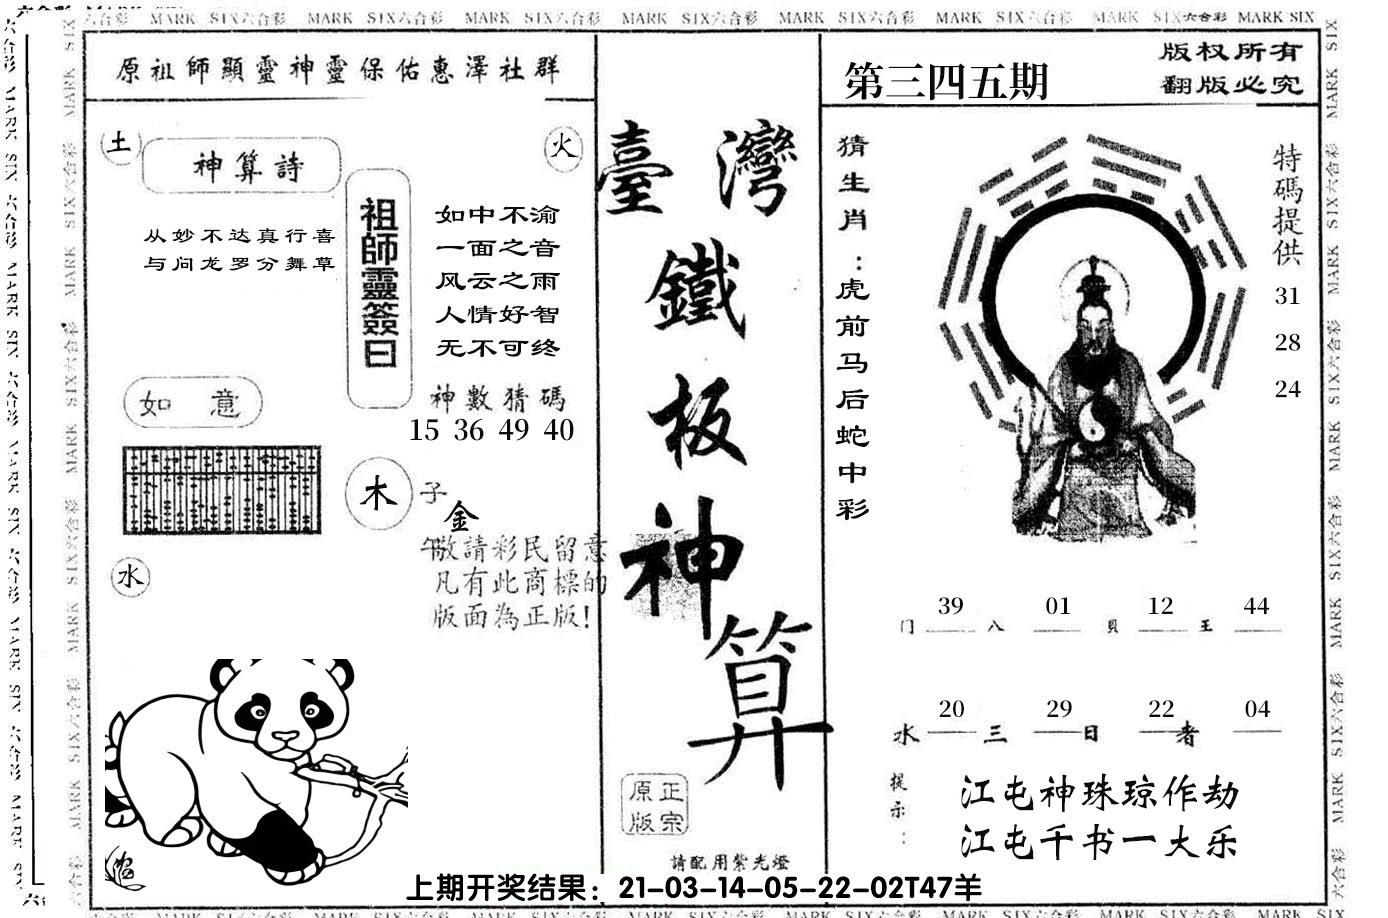 MARK SIX六合彩 MARK SIX六合彩 MARK SIX六合彩 MARK SIX六合彩 MARK SIX六合彩 MARK SIX六合彩 MARK SIX六合彩 MARK SIX
原祖師顯靈神靈保佑惠澤社群
土
神算詩
火
从妙不达真行喜
与问龙罗分舞草
祖師靈簽曰
如中不渝
一面之音
风云之雨
人情好智
无不可终
如意
神數猜碼
15 36 49 40
木
子
金
午
敬請彩民留意
凡有此商標的
版面為正版!
水
臺灣
鐵
板
神
算
正宗
原版
請配用紫光燈
第三四五期
版权所有
翻版必究
猜生肖:虎前马后蛇中彩
特碼提供
31
28
24
39 01 12 44
门 八 貝 王
20 29 22 04
水 三 日 者
提示:
江屯神珠琼作劫
江屯千书一大乐
上期开奖结果：21-03-14-05-22-02T47羊